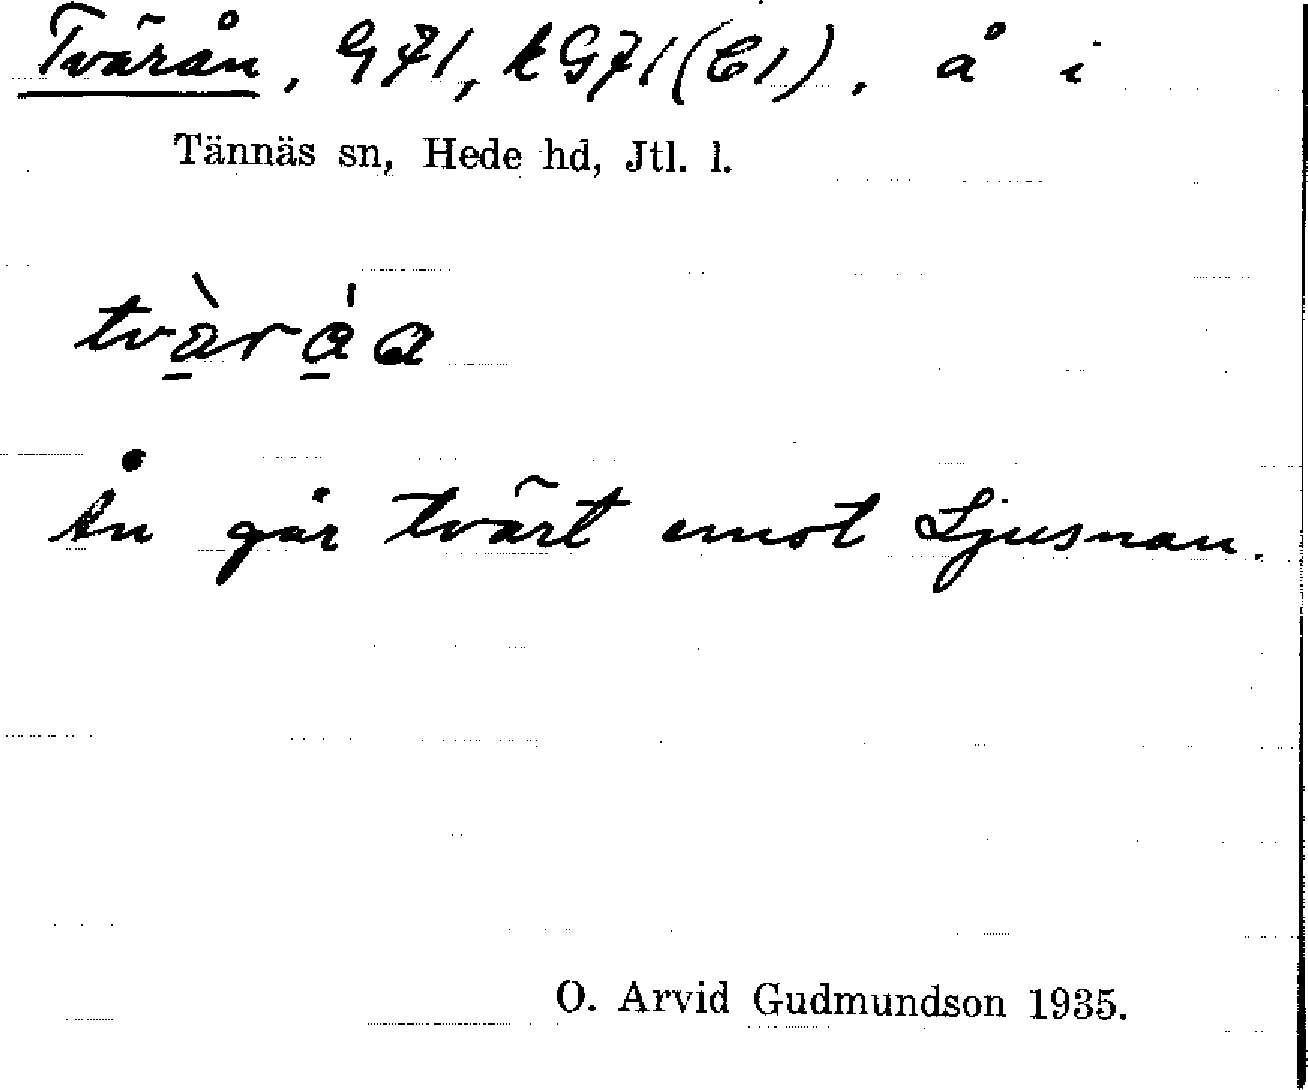 Tvärån, G71, kG71(C1). å i
Tännäs sn, Hede hd, Jtl. l.
Ån går tvärt emot Ljusnan.
O. Arvid Gudmundson 1935.